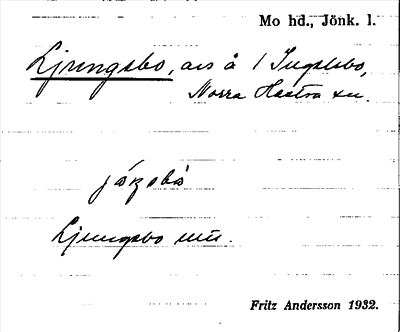 Mo hd., Jönk. l.
Ljungsbo, avs å 1 Ingelsbo,
Norra Hestra sn.
Ljungsbo mü.
Fritz Andersson 1932.